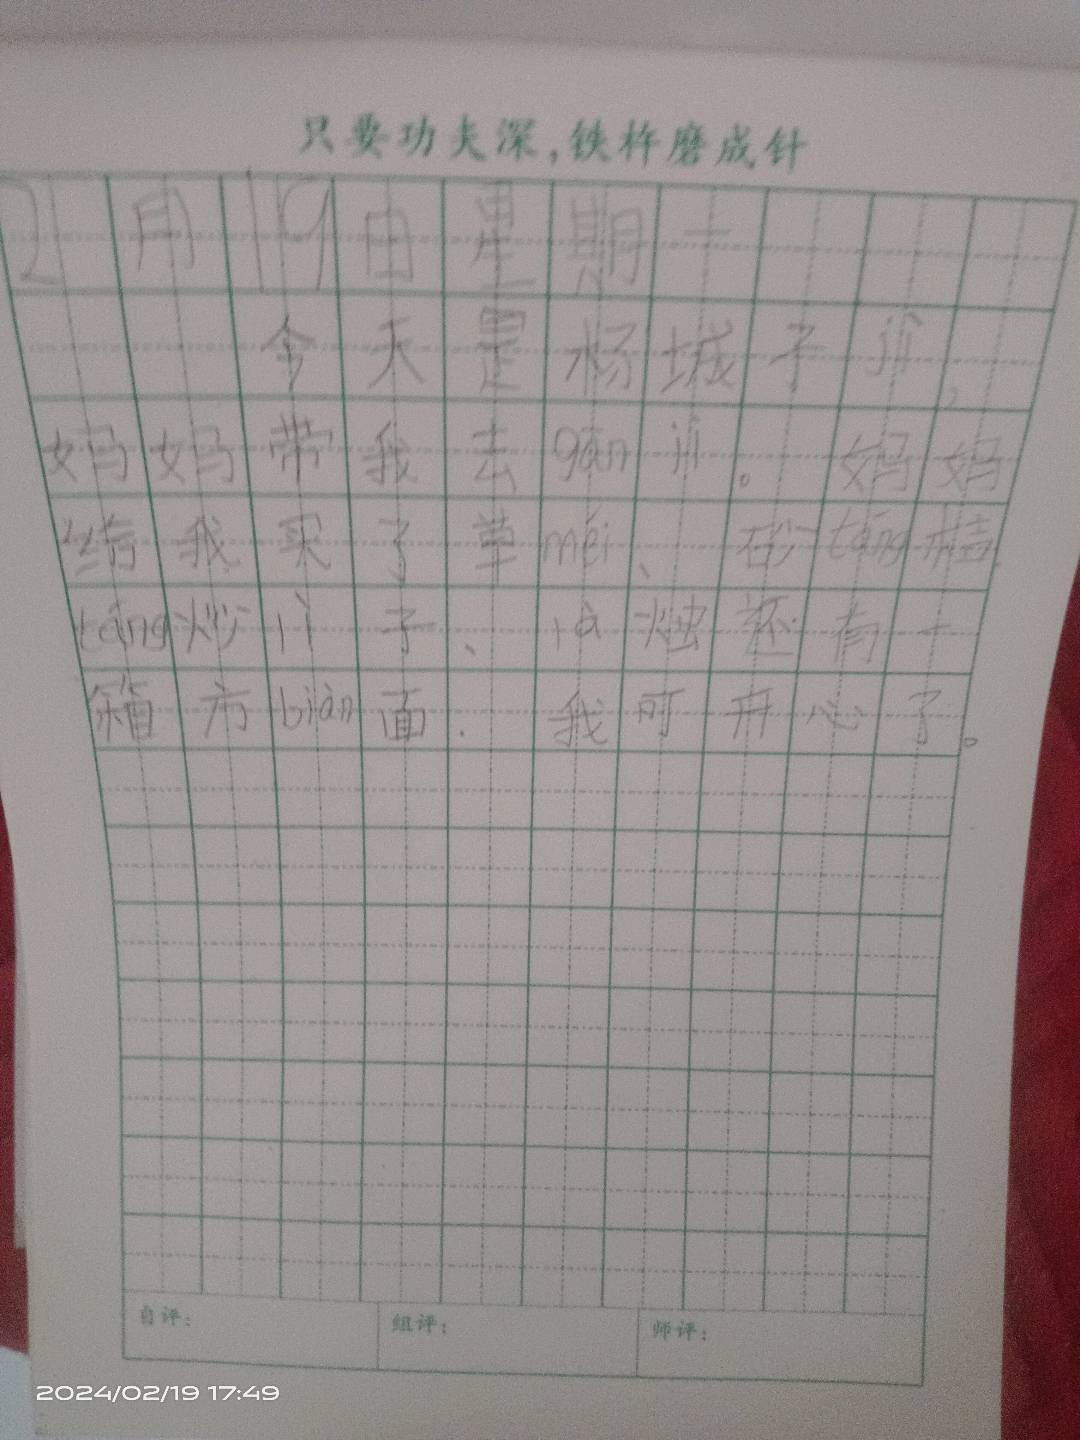 只要功夫深,铁杵磨成针
2月19日星期一
今天是杨城子jí,
妈妈带我去gǎn jí。妈妈
给我买了草méi、砂táng桔、
táng炒 子、là 还有一
箱方biàn面.我可开心了。
自评: 组评: 师评:
2024/02/19 17:49